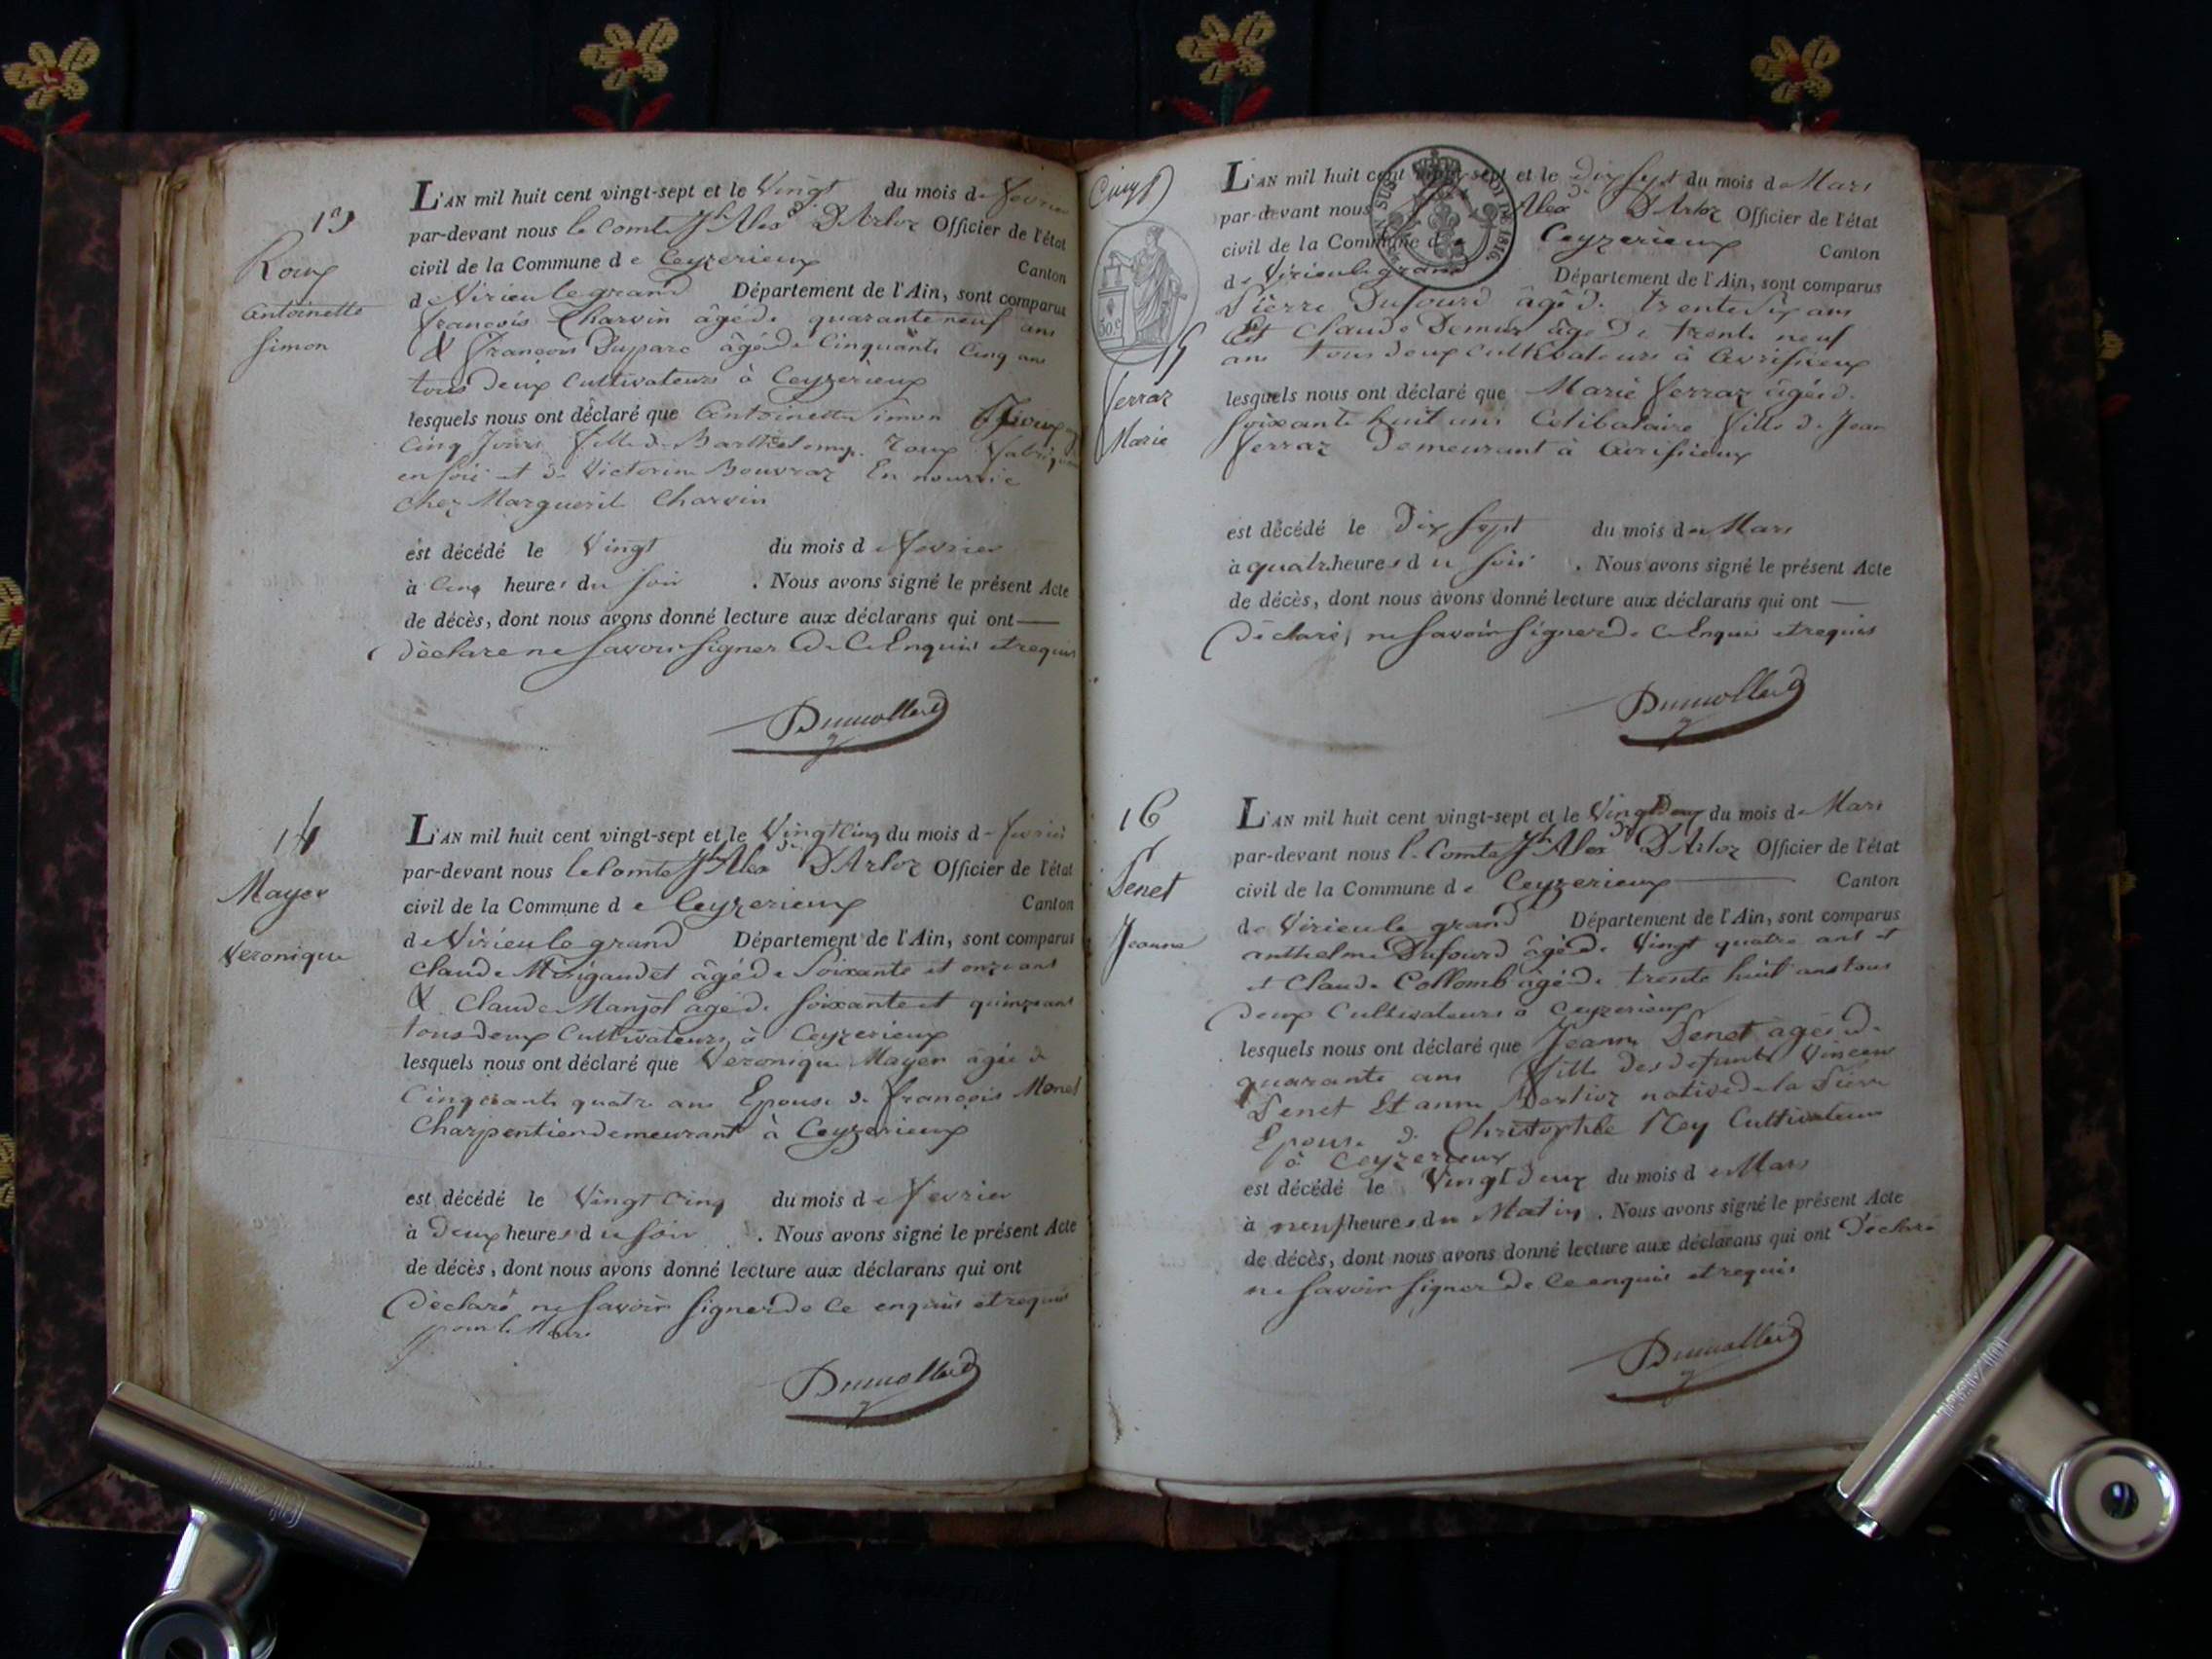 13
Roux
Antoinette
Simon
L'AN mil huit cent vingt-sept et le Vingt du mois de fevrier
par-devant nous le Comte Jh Alex D'Arloz Officier de l'état
civil de la Commune de Ceyzerieux Canton
de Virieu le grand Département de l'Ain, sont comparus
francois Charvin âgé de quarante neuf ans
& francois Duparc âgé de Cinquante Cinq ans
tous deux Cultivateurs à Ceyzerieux
lesquels nous ont déclaré que Antoinette Simon
Cinq Jours fille de Barthelemy roux
en soie et de Victorine Bouvraz En nourrice
chez Marguerit Charvin
est décédé le Vingt du mois de fevrier
à Cinq heures du soir . Nous avons signé le présent Acte
de décès, dont nous avons donné lecture aux déclarans qui ont
déclaré ne savoir signer De Ce Enquis et requis
Dumollard
14
Mayer
Veronique
L'AN mil huit cent vingt-sept et le Vingt Cinq du mois de fevrier
par-devant nous le Comte Jh Alex D'Arloz Officier de l'état
civil de la Commune de Ceyzerieux Canton
de Virieu le grand Département de l'Ain, sont comparus
Claude âgé de Soixante et onze ans
& Claude Manjot agé de soixante et quinze ans
tous deux Cultivateurs à Ceyzerieux
lesquels nous ont déclaré que Veronique Mayer âgée de
Cinquante quatre ans Epouse de françois Monet
Charpentier demeurant à Ceyzerieux
est décédé le Vingt Cinq du mois de fevrier
à Deux heures du soir . Nous avons signé le présent Acte
de décès, dont nous avons donné lecture aux déclarans qui ont
déclaré ne savoir signer de Ce enquis et requis
pour le Maire
Dumollard
30 c
15
Ferraz
Marie
L'AN mil huit cent vingt-sept et le Dix sept du mois de Mars
par-devant nous Alex D'Arloz Officier de l'état
civil de la Commune de Ceyzerieux Canton
de Virieu le grand Département de l'Ain, sont comparus
Pierre Dufourd âgé de trente six ans
Et Claude Demur âgé de trente neuf
ans tous deux Cultivateurs à Avrissieux
lesquels nous ont déclaré que Marie Ferraz âgée de
soixante huit ans Celibataire fille de Jean
Ferraz Demeurant à Avrissieux
est décédé le Dix sept du mois de Mars
à quatre heures du soir . Nous avons signé le présent Acte
de décès, dont nous avons donné lecture aux déclarans qui ont
Déclaré ne savoir signer de Ce Enquis et requis
Dumollard
16
Penet
Jeanne
L'AN mil huit cent vingt-sept et le Vingt Deux du mois de Mars
par-devant nous le Comte Jh Alex D'Arloz Officier de l'état
civil de la Commune de Ceyzerieux Canton
de Virieu le grand Département de l'Ain, sont comparus
anthelme Dufourd âgé de Vingt quatre ans et
et Claude Collomb âgé de trente huit ans tous
deux Cultivateurs à Ceyzerieux
lesquels nous ont déclaré que Jeanne Penet âgée de
quarante ans fille des defunts Vincent
Penet Et anne native de la
Epouse de Christophle Rey Cultivateur
à Ceyzerieux
est décédé le Vingt Deux du mois de Mars
à neuf heures du Matin . Nous avons signé le présent Acte
de décès, dont nous avons donné lecture aux déclarans qui ont Déclaré
ne savoir signer de Ce enquis et requis
Dumollard